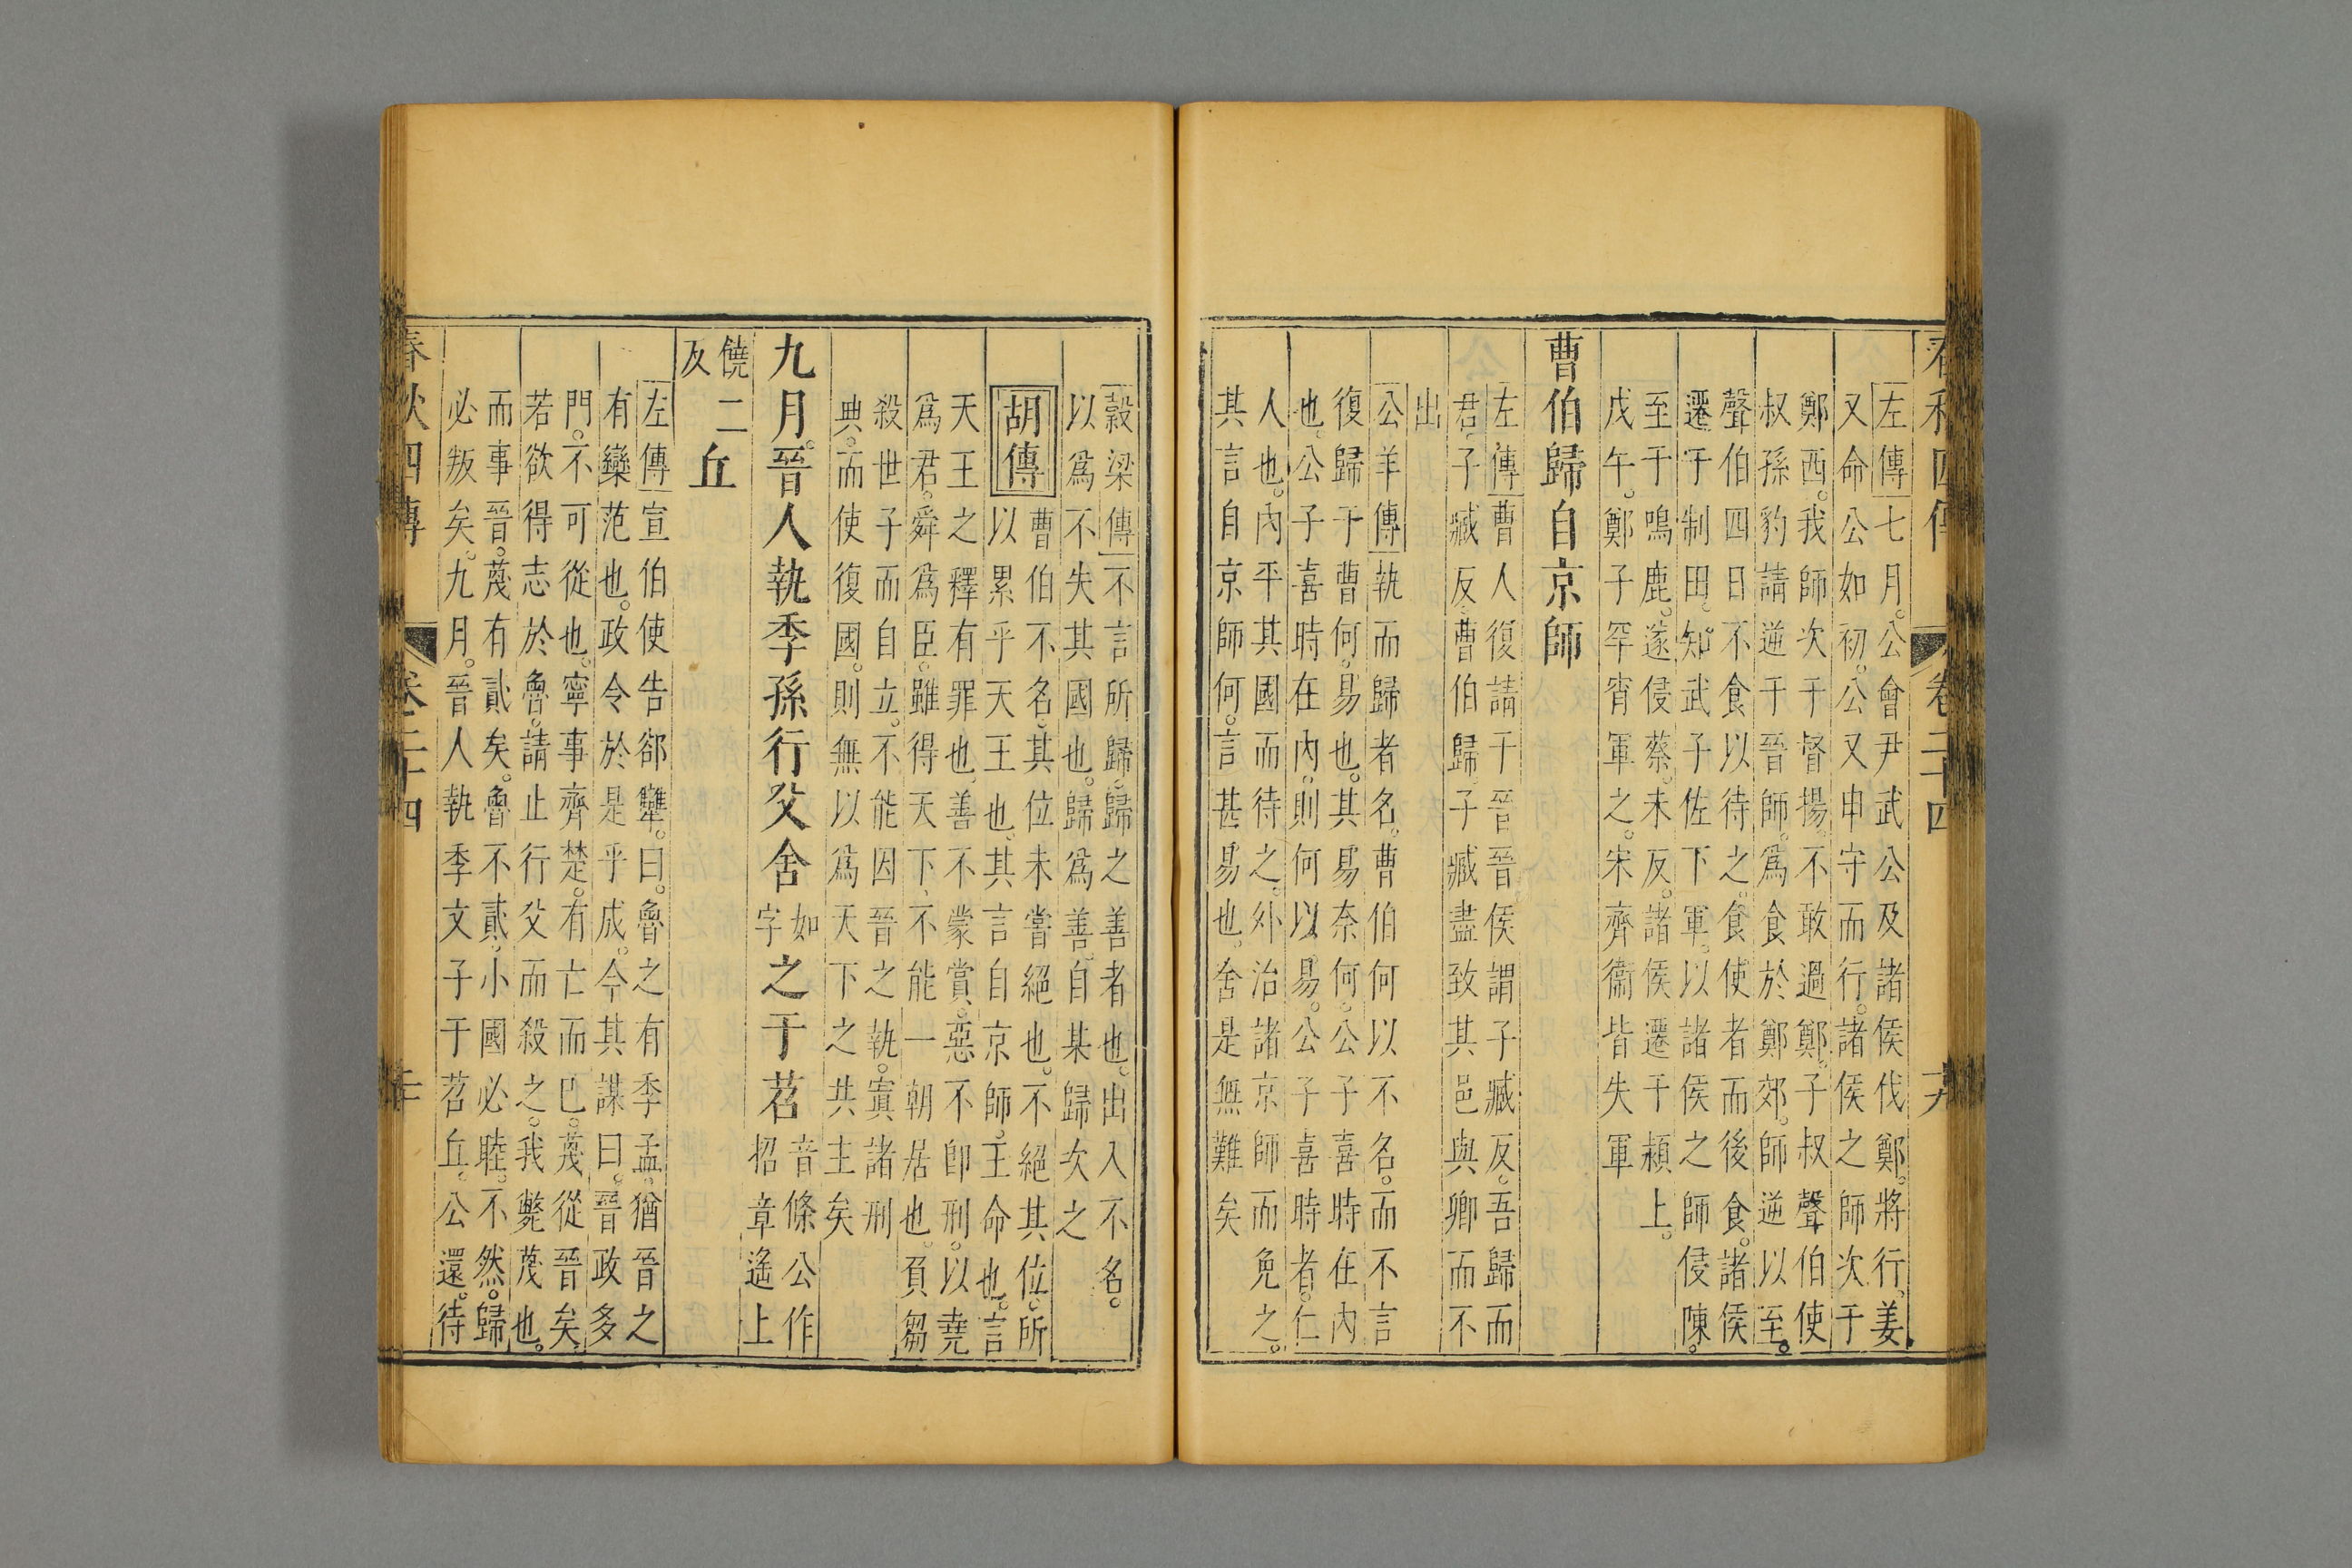 春秋四傳 卷二十四 十九
左傳七月。公會尹武公及諸侯伐鄭。將行。姜
又命公如初。公又申守而行。諸侯之師次于
鄭西。我師次于督揚。不敢過鄭。子叔聲伯使
叔孫豹請逆于晉師。爲食於鄭郊。師逆以至。
聲伯四日不食以待之。食使者而後食。諸侯
遷于制田。知武子佐下軍。以諸侯之師侵陳。
至于鳴鹿。遂侵蔡。未反。諸侯遷于潁上。
戊午。鄭子罕宵軍之。宋齊衞皆失軍
曹伯歸自京師
左傳曹人復請于晉晉侯謂子臧反。吾歸而
君。子臧反。曹伯歸子臧盡致其邑與卿而不
出
公羊傳執而歸者名。曹伯何以不名。而不言
復歸于曹何。易也。其易奈何。公子喜時在內
也。公子喜時在內。則何以易。公子喜時者。仁
人也。內平其國而待之。外治諸京師而免之。
其言自京師何。言甚易也。舍是無難矣
穀梁傳不言所歸。歸之善者也。出入不名。
以爲不失其國也。歸爲善。自某歸次之
胡傳曹伯不名。其位未嘗絕也。不絕其位。所
以累乎天王也。其言自京師。王命也。言
天王之釋有罪也。善不蒙賞。惡不即刑。以堯
爲君。舜爲臣。雖得天下。不能一朝居也。負芻
殺世子而自立。不能因晉之執。寘諸刑
典。而使復國。則無以爲天下之共主矣
九月。晉人執季孫行父舍如字之于苕音條公作招章遙上
饒二反丘
左傳宣伯使告郤犨。曰。魯之有季孟。猶晉之
有欒范也。政令於是乎成。今其謀曰。晉政多
門。不可從也。寧事齊楚。有亡而已。蔑從晉矣。
若欲得志於魯。請止行父而殺之。我斃蔑也。
而事晉。蔑有貳矣。魯不貳。小國必睦。不然。歸
必叛矣。九月。晉人執季文子于苕丘。公還。待
春秋四傳 卷二十四 二十